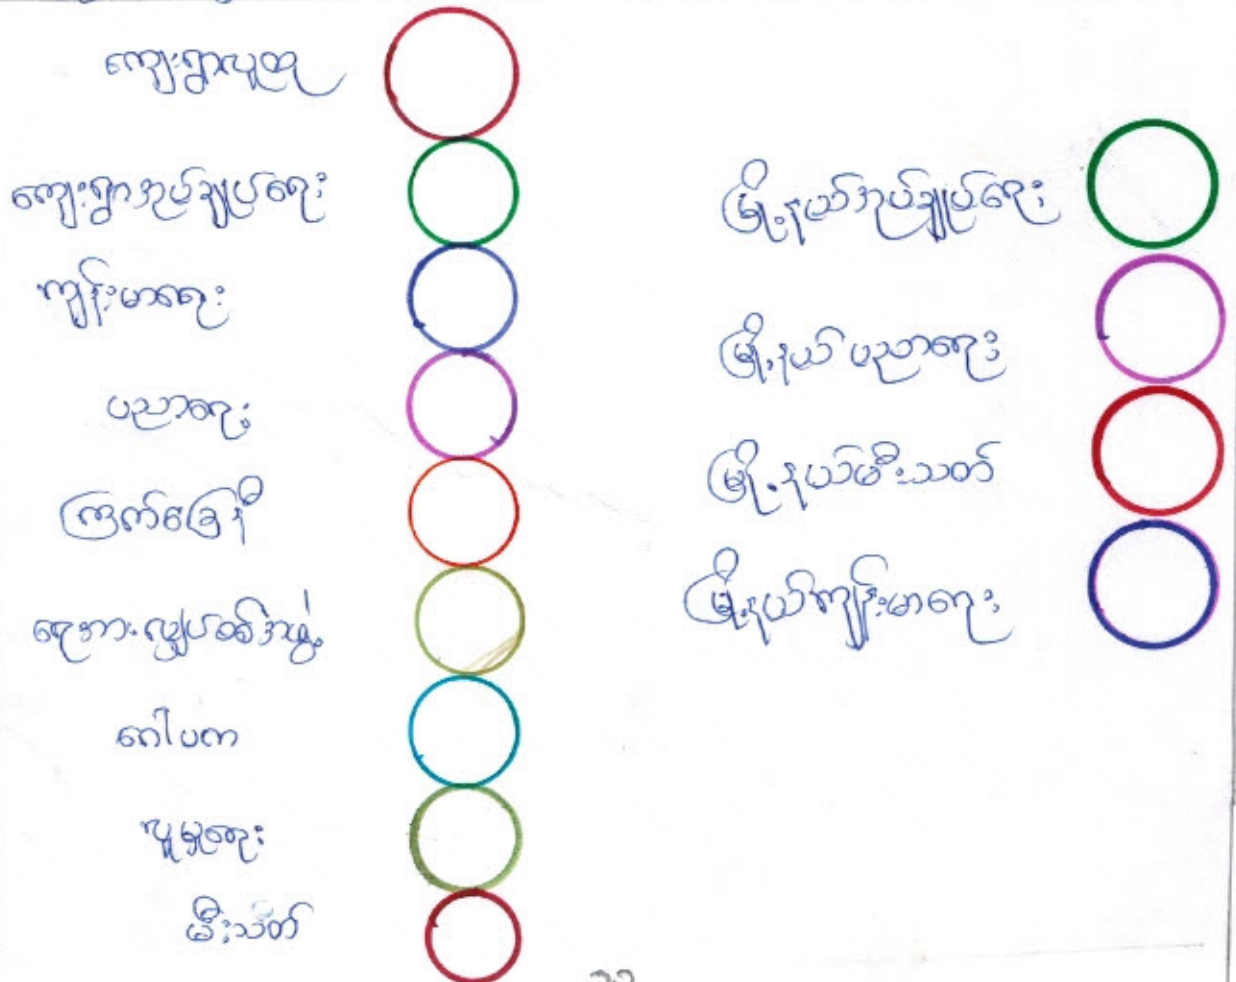 ကျေးရွာလူထု
ကျေးရွာအုပ်ချုပ်ရေး
ကျန်းမာရေး
ပညာရေး
ကြက်ခြေနီ
ရေအားလျှပ်စစ်အဖွဲ့
ဂေါပက
လူမှုရေး
မီးသတ်
မြို့နယ်အုပ်ချုပ်ရေး
မြို့နယ် ပညာရေး
မြို့နယ်မီးသတ်
မြို့နယ်ကျန်းမာရေး